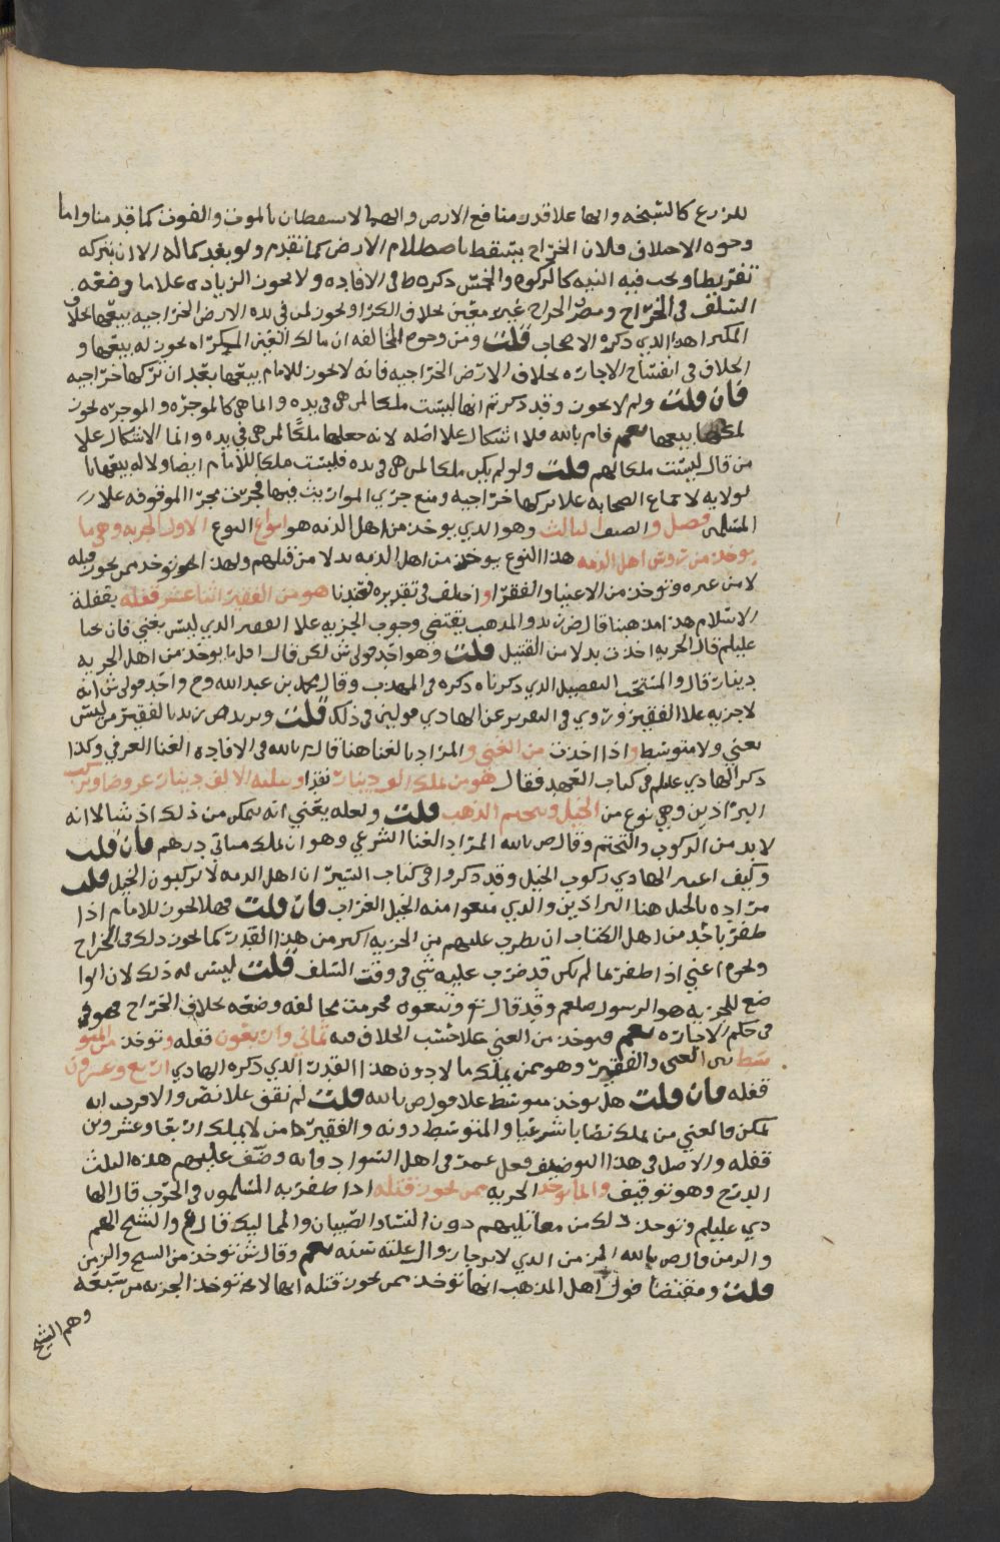 للزرع كالسبخه وانها علا قدر منافع الارض وانهما لا يسقطان بالموت والفوت كما قدمنا واما
وجوه الاختلاف فلان الخراج يسقط باصطلام الارض كما تقدم ولو بعد كماله الا ان يتركه
تفريطا ويجب فيه النيه كالزكوه والخمس ذكره ط في الافاده ولا يجوز الزياده علا ما وضعه
السلف في الخراج ومصرف الخراج غير معين بخلاف الكرا ويجوز لمن في يده الارض الخراجيه بيعها بخلاف
المكترا هذا الذي ذكره الاصحاب قلت ومن وجوه المخالفه ان مالك العين المكتراه يجوز له بيعها و
الخلاف في انفساخ الاجاره بخلاف الارض الخراجيه فانه لا يجوز للامام بيعها بعد ان تركها خراجيه
فان قلت ولم لا يجوز وقد ذكرتم انها ليست ملكا لمن هي في يده وانما هي كالموجره والموجره يجوز
لمالكها بيعها نعم قام بالله فلا اشكال علا اصله لانه جعلها ملكا لمن هي في يده وانما الاشكال علا
من قال ليست ملكا لهم قلت ولو لم يكن ملكا لمن هي في يده فليست ملكا للامام ايضا ولا له بيعها با
لولايه لاجماع الصحابه علا تركها خراجيه ومنع جري المواريث فيها فجرت مجرا الموقوفه علا
المسلمين فصل والصنف الثالث وهو الذي يوخذ من اهل الذمه هو انواع النوع الاول الجزيه وهي ما
يوخذ من روس اهل الذمه هذا النوع يوخذ من اهل الذمه بدلا من قتلهم ولهذا انها توخذ ممن يجوز قتله
لا من غيره وتوخذ من الاغنيا والفقرا واختلف في تقديره فعندنا هو من الفقير اثنا عشر قفله بقفلة
الاسلام هذا مذهبنا قال ص زيد والمذهب يقتضي وجوب الجزيه علا الفقير الذي ليس بغني فان يحيا
عليلم قال الجزيه اخذت بدلا من القتيل قلت وهو احد قولي ش لكن قال اقل ما يوخذ من اهل الجزيه
دينار قال والمستحب التفصيل الذي ذكرناه ذكره في المهذب وقال محمد بن عبدالله وح واحد قولي ش انه
لا جزيه علا الفقير وروي في التقرير عن الهادي قولين في ذلك قلت ويريد ص زيد بالفقير من ليس
بغني ولا متوسط واذا اخذت من الغني والمراد بالغنا هنا قال م بالله في الافاده الغنا العرفي وكذا
ذكر الهادي عللم في كتاب العهد فقال هو من يملك الف دينار نقدا وثلثه الالف دينار عروضا ويركب
البراذين وهي نوع من الخيل ويتختم الذهب قلت ولعله يعني انه يتمكن من ذلك اذ شا لا انه
لا بد من الركوب والتختم وقال ص بالله المراد الغنا الشرعي وهو ان يملك مياتي درهم فان قلت
وكيف اعتبر الهادي ركوب الخيل وقد ذكروا في كتاب السير ان اهل الذمه لا يركبون الخيل قلت
مراده بالخيل هنا البراذين والذي منعوا منه الخيل العراب فان قلت فهلا يجوز للامام اذا
ظفر باحد من اهل الكتاب ان يضرب عليهم من الجزيه اكثر من هذا القدر كما يجوز ذلك في الخراج
ونحوه اعني اذا ظفر بما لم يكن قد ضرب عليه شي في وقت السلف قلت ليس له ذلك لان الوا
ضع للجزيه هو الرسول صلعم وقد قال تع وتتبعوه فحرمت مخالفه وضعه بخلاف الخراج فهو في
في حكم الاجاره نعم فيوخذ من الغني علا حسب الخلاف فيه ثماني واربعون قفله وتوخذ من المتو
سط بين الغني والفقير وهو من يملك مالا دون هذا القدر الذي ذكره الهادي اربع وعشرون
قفله فان قلت هل يوخذ متوسط علا قول ص بالله قلت لم نقف علا نص والاقرب انه
يمكن فالغني من يملك نصابا شرعيا والمتوسط دونه والفقير ها من لا يملك اربعا وعشرين
قفله والاصل في هذا التوظيف فعل عمر في اهل السواد فانه وضف عليهم هذه الثلث
الدرج وهو توقيف وانما توخذ الجزيه ممن يجوز قتله اذا ظفر به المسلمون في الحرب قال الها
دي عليلم وتوخذ ذلك من مقاتليهم دون النسا والصبيان والمماليك قال ع والشيخ الهم
والزمن قال ص بالله الزمن الذي لا يرجا زوال علته سنه نعم وقال ش توخذ من الشيخ والزمن
قلت ومقتضا قول اهل المذهب انها توخذ ممن يجوز قتله انها لا توخذ الجزيه من سبعه
وهم الشيخ